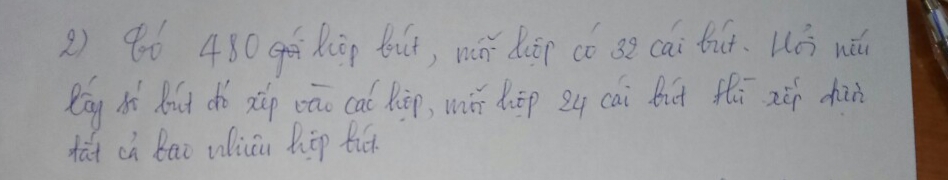 2) Có 480 hộp bút, mỗi hộp có 32 cái bút. Hỏi nếu
lấy số bút đó xếp vào các hộp, mỗi hộp 24 cái bút thì xếp được
tất cả bao nhiêu hộp bút.